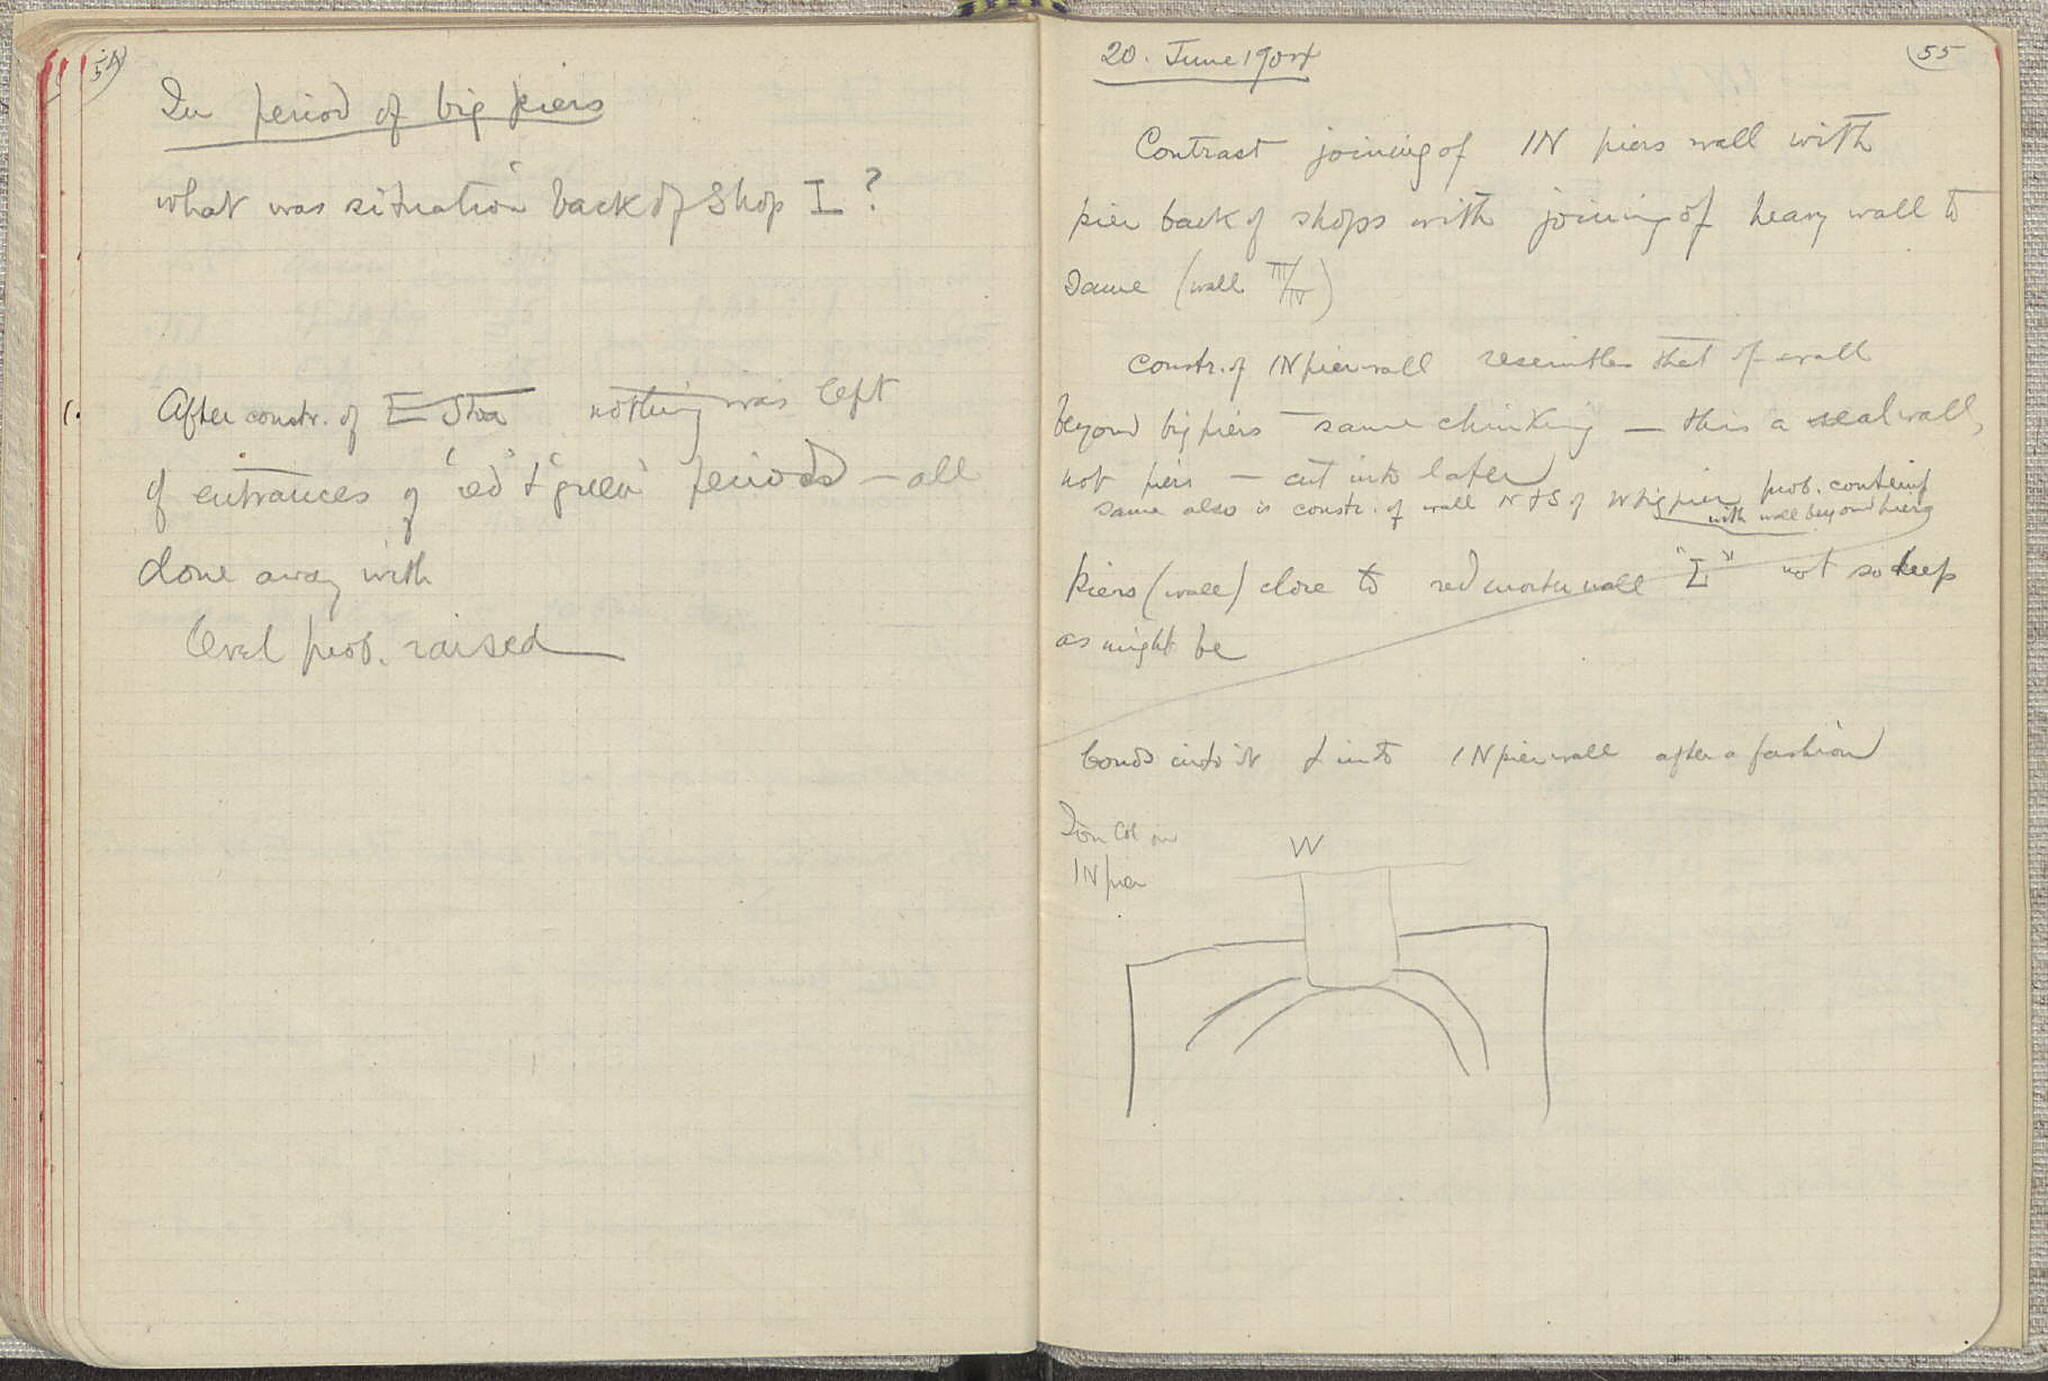 54
In period of big piers
what was situation back of Shop I ?
After constr. of E Stoa nothing was left
of entrances of 'red' & 'green' periods — all
done away with
level prob. raised
20. June 1904
55
Contrast joining of IN piers wall with
pier back of shops with joining of heavy wall to
same (wall III/IV)
Constr. of IN pier wall resembles that of wall
beyond big piers — same chinking — this a real wall,
not piers — cut into later
same also is constr. of wall N & S of W big pier, prob. contemp
with wall beyond piers
Piers (wall) close to red mortar wall "Σ" not so deep
as might be
bonds into it & into IN pier wall after a fashion
Ion Col on
IN pier
W